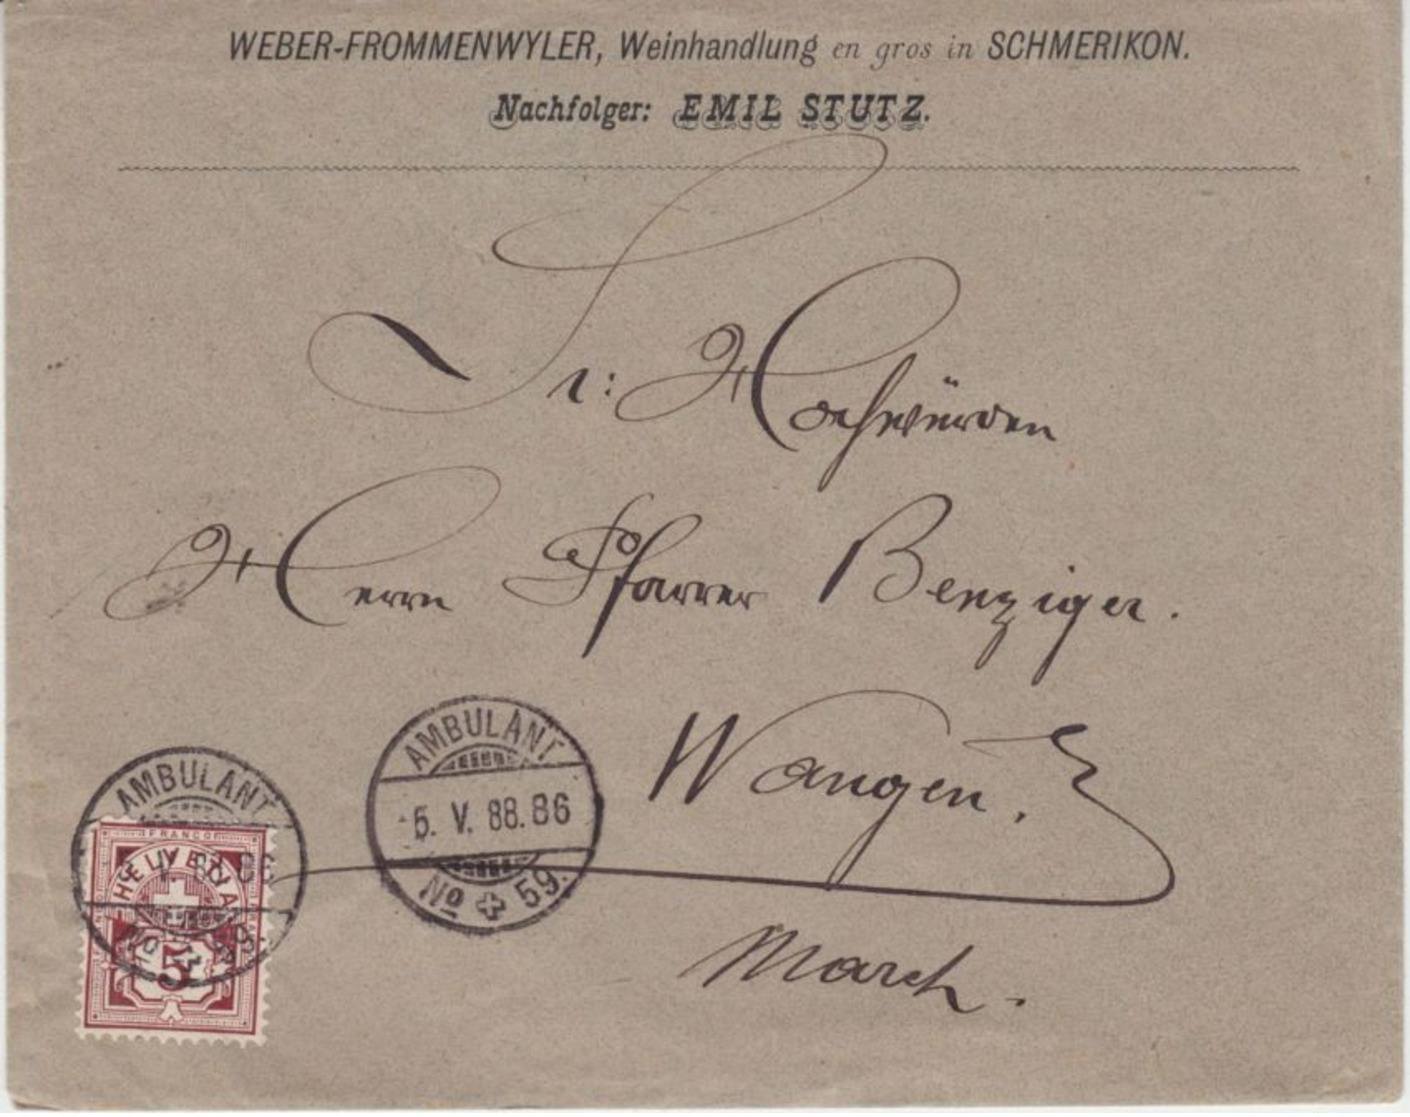 WEBER-FROMMENWYLER, Weinhandlung en gros in SCHMERIKON.
Nachfolger: EMIL STUTZ.
Sr: Hochwürden
Herrn Pfarrer Benziger.
Wangen,
March.
AMBULANT
5. V. 88.86
No 59.
AMBULANT
FRANCO
HELVETIA
5